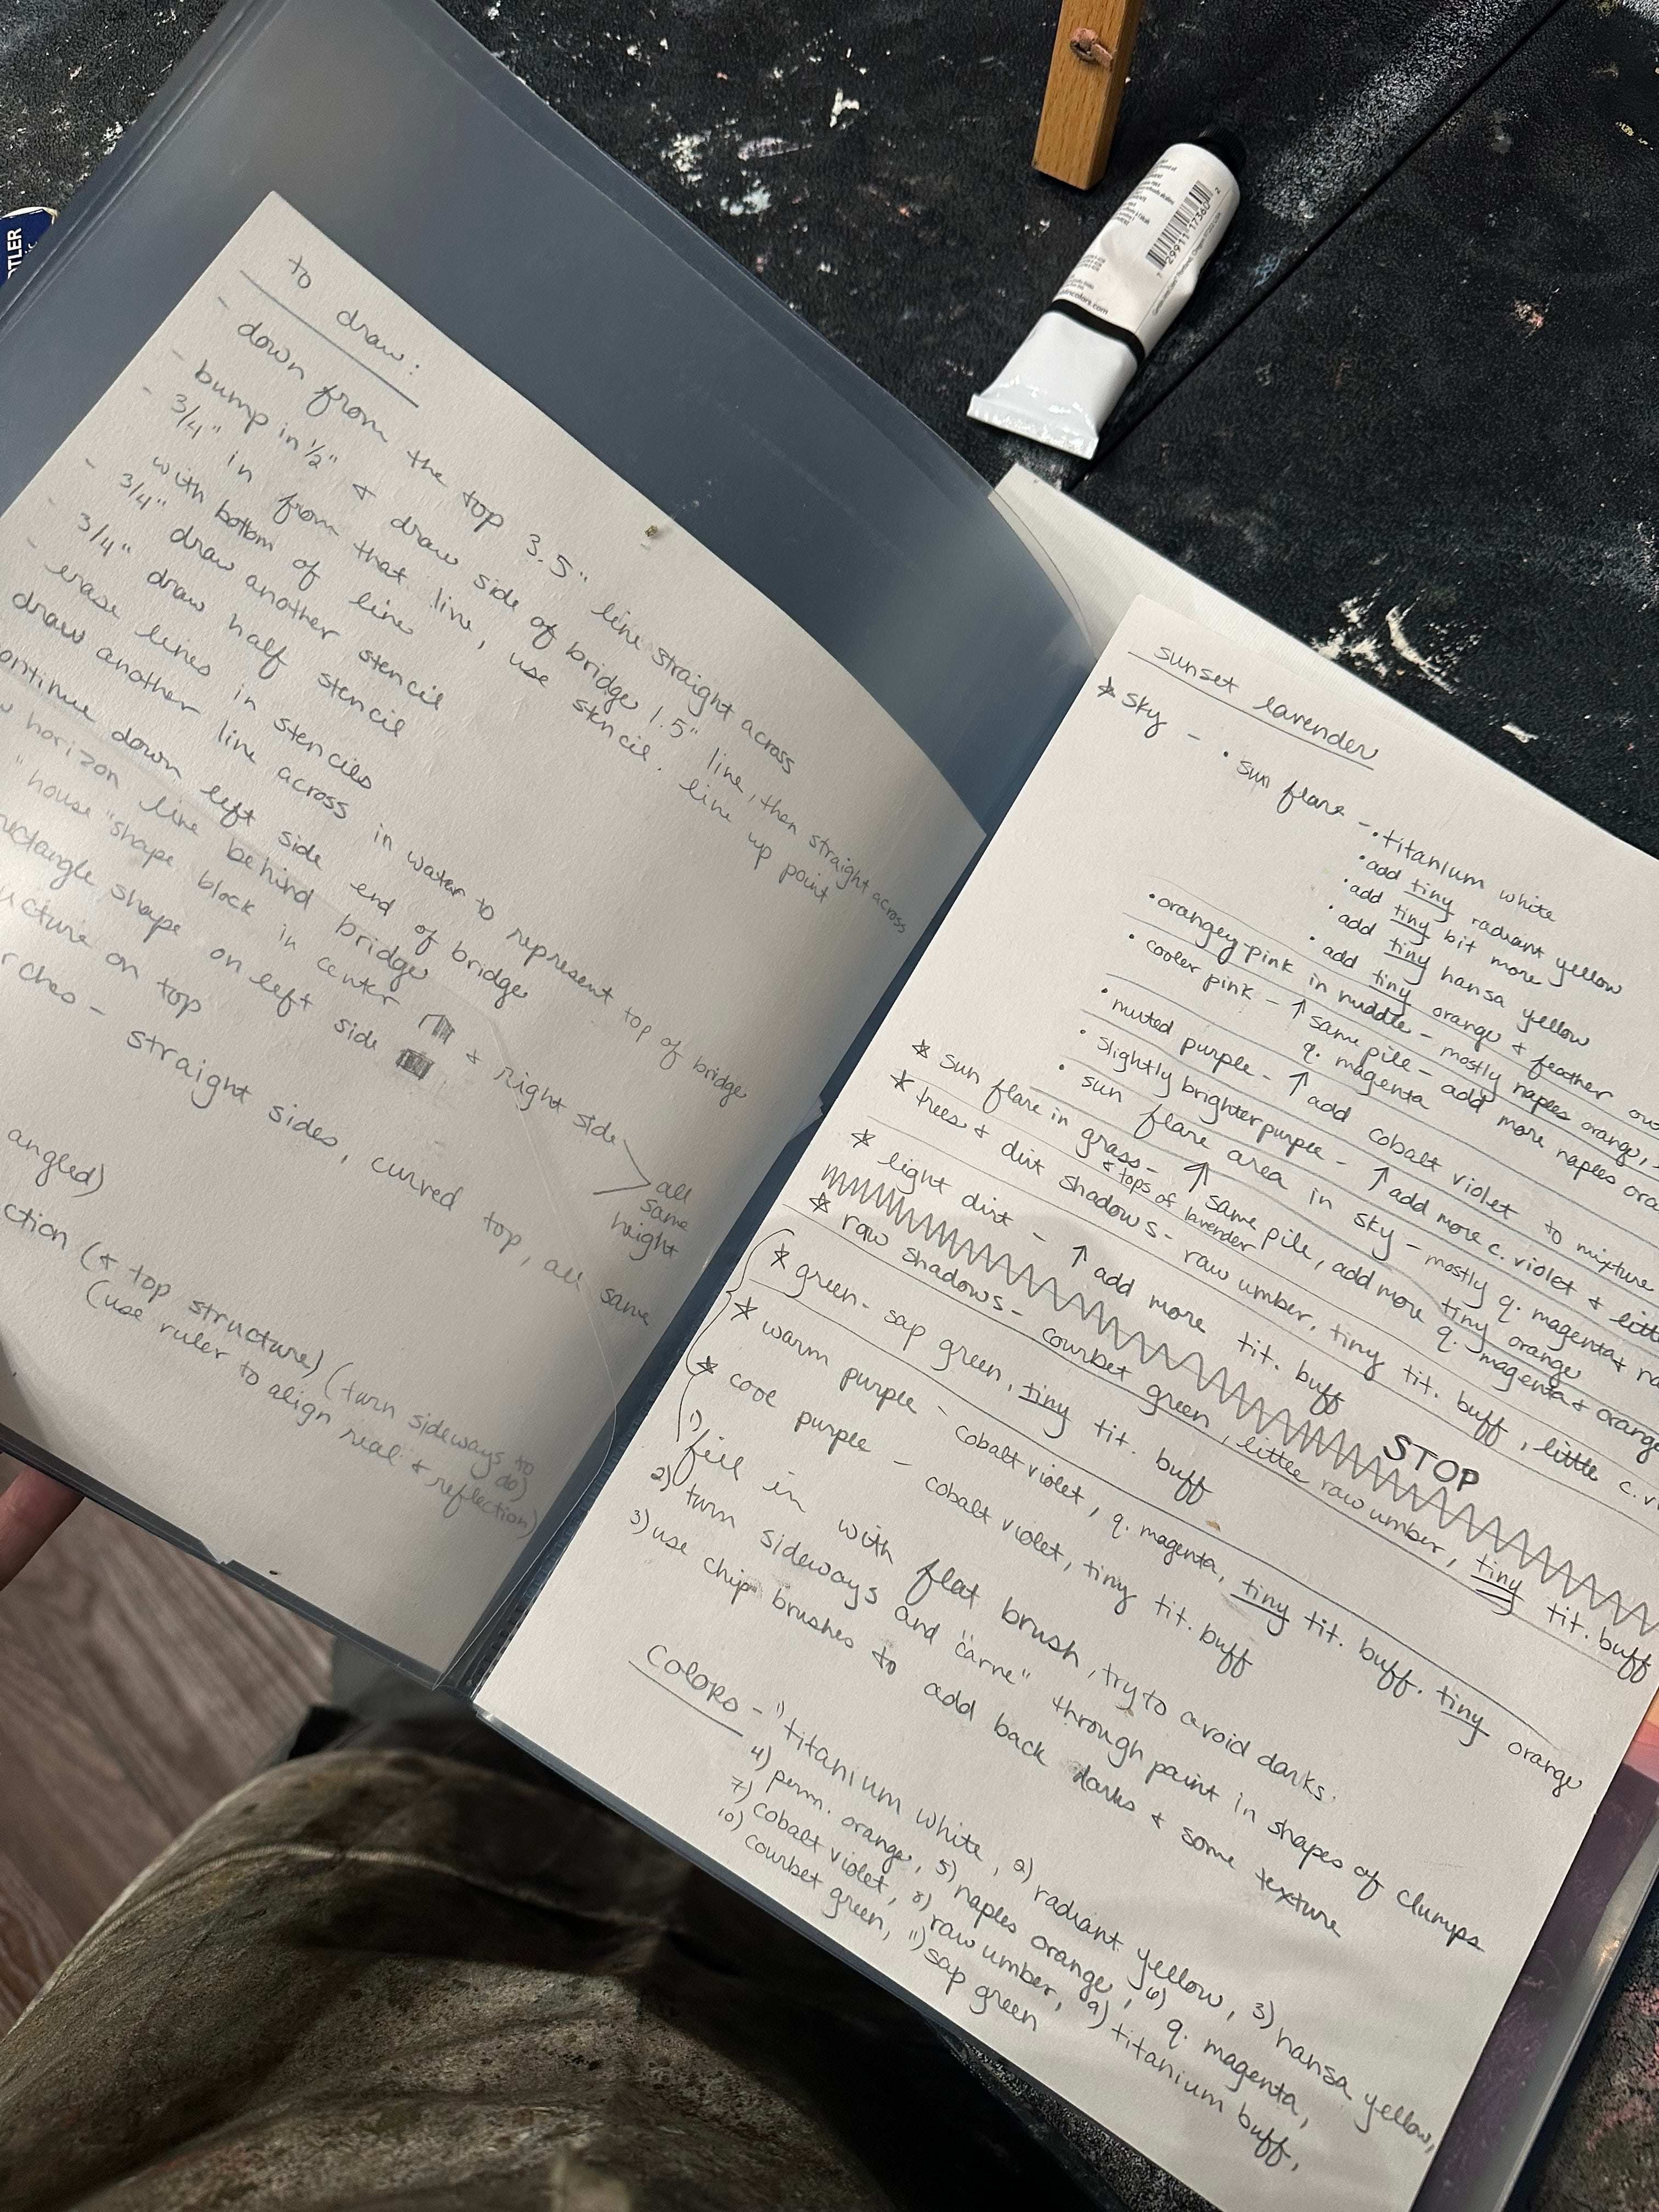 TLER
7 29911 17360 2
to draw:
- down from the top 3.5" line straight across
- bump in 1/2" & draw side of bridge 1.5" line, then straight across
- 3/4" in from that line, use stencil. line up point
with bottom of line
- 3/4" draw another stencil
- 3/4" draw half stencil
- erase lines in stencils
draw another line across in water to represent top of bridge
ontinue down left side end of bridge
w horizon line behind bridge
"house" shape block in center & right side
ectangle shape on left side
ucture on top
all same height
rches - straight sides, curved top, all same
angled)
ction (& top structure) (turn sideways to do)
(use ruler to align real & reflection)
sunset lavender
* sky - • sun flare - • titanium white
• add tiny radiant yellow
• add tiny bit more
• add tiny hansa yellow
• add tiny orange & feather ou
• orangey pink in middle - mostly naples orange,
• cooler pink - ↑ same pile - add more naples ora
q. magenta
• muted purple - ↑ add cobalt violet to mixture
• slightly brighter purple - ↑ add more c. violet & litt
• sun flare area in sky - mostly q. magenta & na
* sun flare in grass - ↑ same pile, add more q. magenta & orange
& tops of lavender
tiny orange
* trees & dirt shadows - raw umber, tiny tit. buff, little c. v
* light dirt - ↑ add more tit. buff
STOP
* raw shadows - courbet green, little raw umber, tiny tit. buff
* green - sap green, tiny tit. buff
* warm purple - cobalt violet, q. magenta, tiny tit. buff. tiny orange
* cool purple - cobalt violet, tiny tit. buff
1) fill in with flat brush, try to avoid darks.
2) turn sideways and "carve" through paint in shapes of clumps
3) use chip brushes to add back darks & some texture
Colors - 1) titanium white, 2) radiant yellow, 3) hansa yellow,
4) perm. orange, 5) naples orange, 6) q. magenta,
7) cobalt violet, 8) raw umber, 9) titanium buff,
10) courbet green, 11) sap green